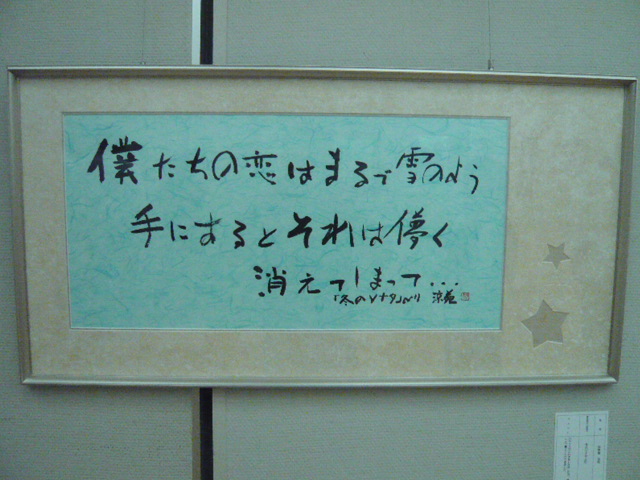 僕たちの恋はまるで雪のよう
手にするとそれは儚く
消えてしまって...
「冬のソナタ」より